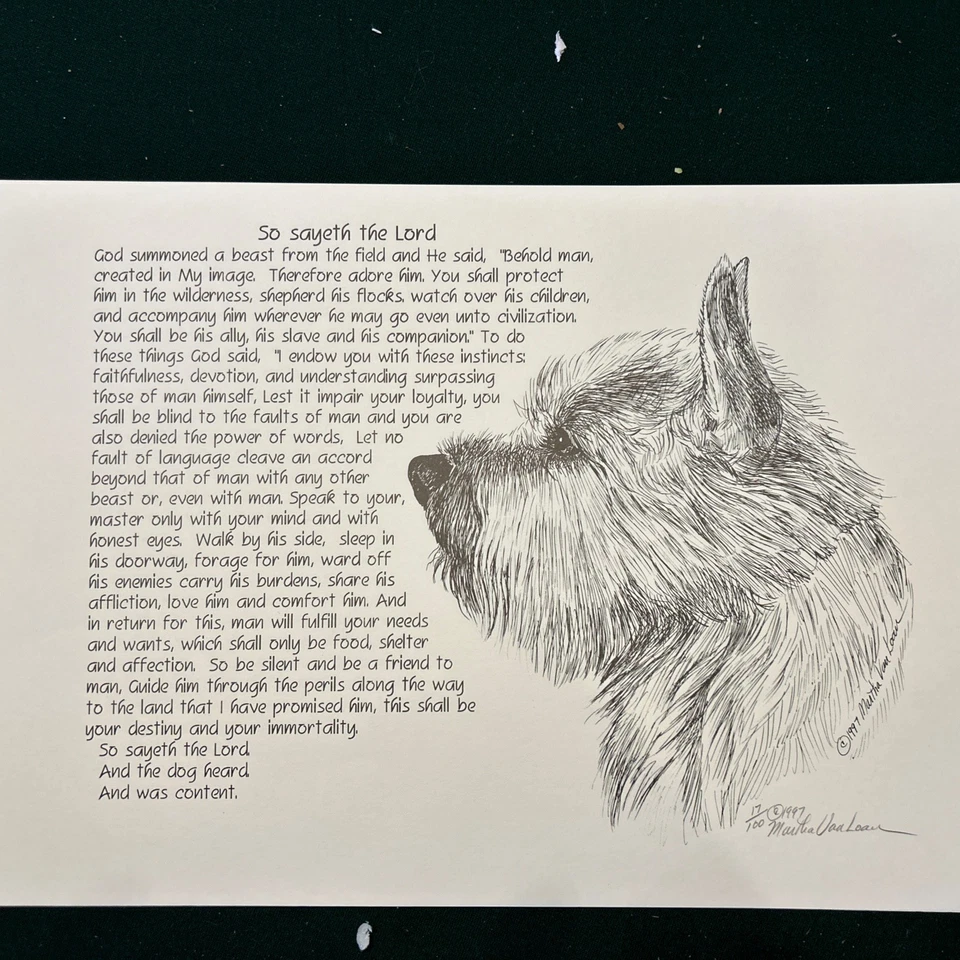 So sayeth the Lord
God summoned a beast from the field and He said, "Behold man,
created in My image. Therefore adore him. You shall protect
him in the wilderness, shepherd his flocks, watch over his children,
and accompany him wherever he may go even unto civilization.
You shall be his ally, his slave and his companion." To do
these things God said, "I endow you with these instincts:
faithfulness, devotion, and understanding surpassing
those of man himself, Lest it impair your loyalty, you
shall be blind to the faults of man and you are
also denied the power of words, Let no
fault of language cleave an accord
beyond that of man with any other
beast or, even with man. Speak to your,
master only with your mind and with
honest eyes. Walk by his side, sleep in
his doorway, forage for him, ward off
his enemies carry his burdens, share his
affliction, love him and comfort him. And
in return for this, man will fulfill your needs
and wants, which shall only be food, shelter
and affection. So be silent and be a friend to
man, Guide him through the perils along the way
to the land that I have promised him, this shall be
your destiny and your immortality.
So sayeth the Lord.
And the dog heard.
And was content.
©1997 Martha Van Loan
17/100 ©1997
Martha Van Loan